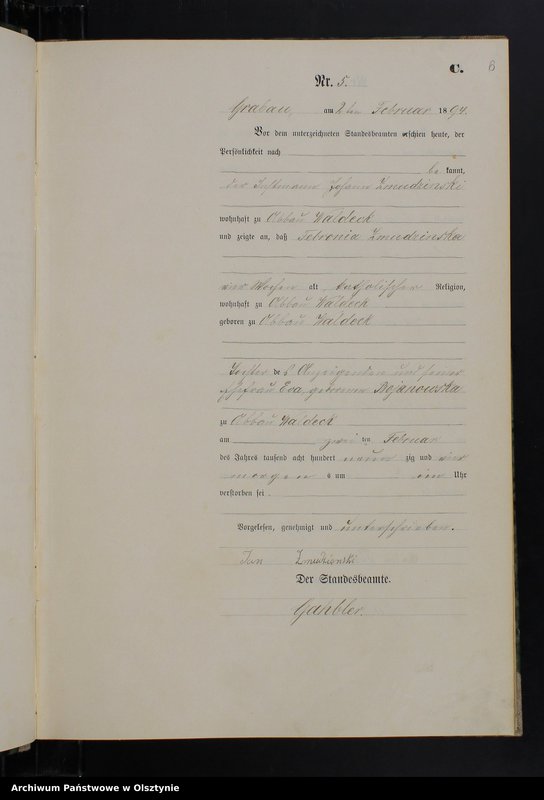 C.
Nr. 5.
Grabau, am 2ten Februar 1894.
Vor dem unterzeichneten Standesbeamten erschien heute, der
Persönlichkeit nach
be kannt,
der Instmann Johann Zmudzinski
wohnhaft zu Abbau Waldeck
und zeigte an, daß Febronia Zmudzinska
vier Wochen alt, katholischer Religion,
wohnhaft zu Abbau Waldeck
geboren zu Abbau Waldeck
Tochter des Anzeigenden und seiner
Ehefrau Eva geborenen Bojanowska
zu Abbau Waldeck
am zwei ten Februar
des Jahres tausend acht hundert neun zig und vier
morgens um Uhr
verstorben sei.
Vorgelesen, genehmigt und unterschrieben.
Jan Zmudzienski
Der Standesbeamte.
Gahbler.
Archiwum Państwowe w Olsztynie